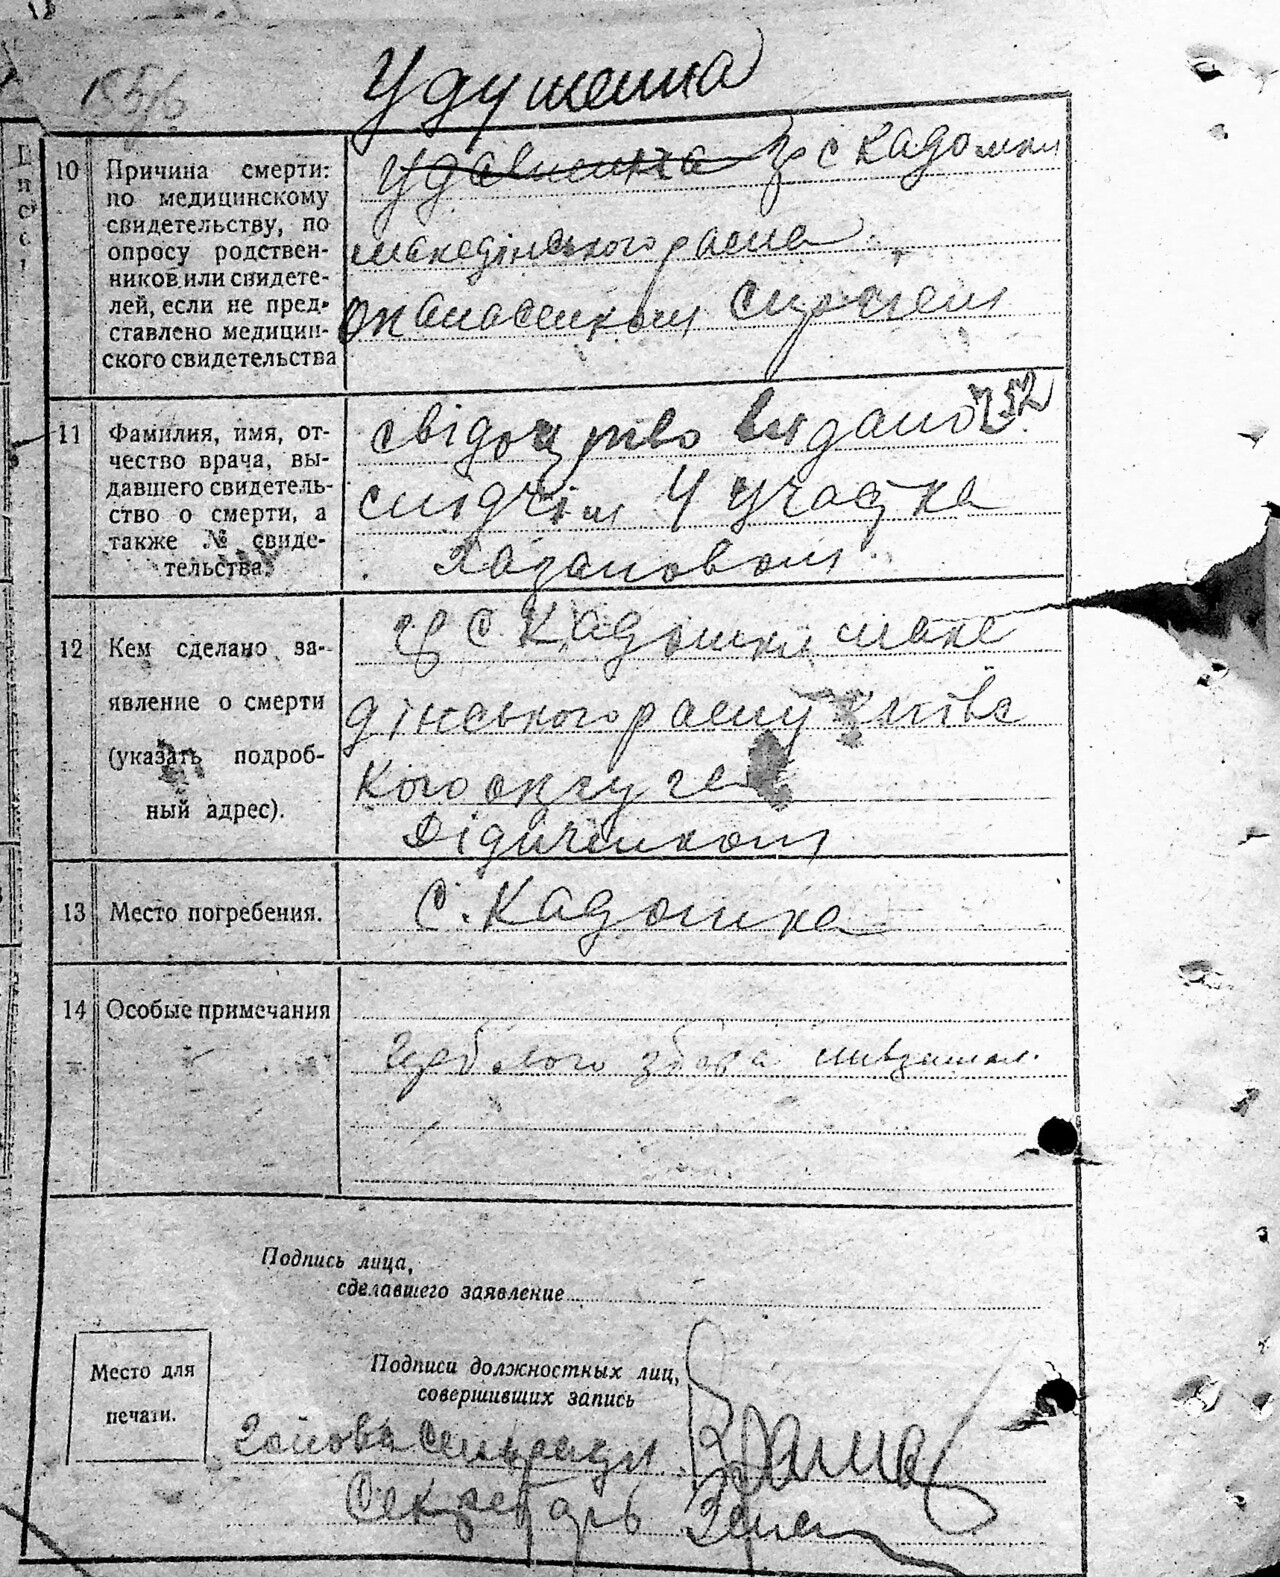 155/6
Удушенна
10 Причина смерти:
по медицинскому
свидетельству, по
опросу родствен-
ников или свидете-
лей, если не пред-
ставлено медицин-
ского свидетельства
з с Кадомки
македінського раена
Опанасенком Сиргіем
11 Фамилия, имя, от-
чество врача, вы-
давшего свидетель-
ство о смерти, а
также № свиде-
тельства.
свідоцтво видано
слідчім 4 участка
Хазановом
12 Кем сделано за-
явление о смерти
(указать подроб-
ный адрес).
с Кадомки маке
дінського раену
кого округе
Дідиченком
13 Место погребения.
С. Кадомка
14 Особые примечания
збора
Подпись лица,
сделавшего заявление
Место для
печати.
Подписи должностных лиц,
совершивших запись
Голова сельради
Секретарь